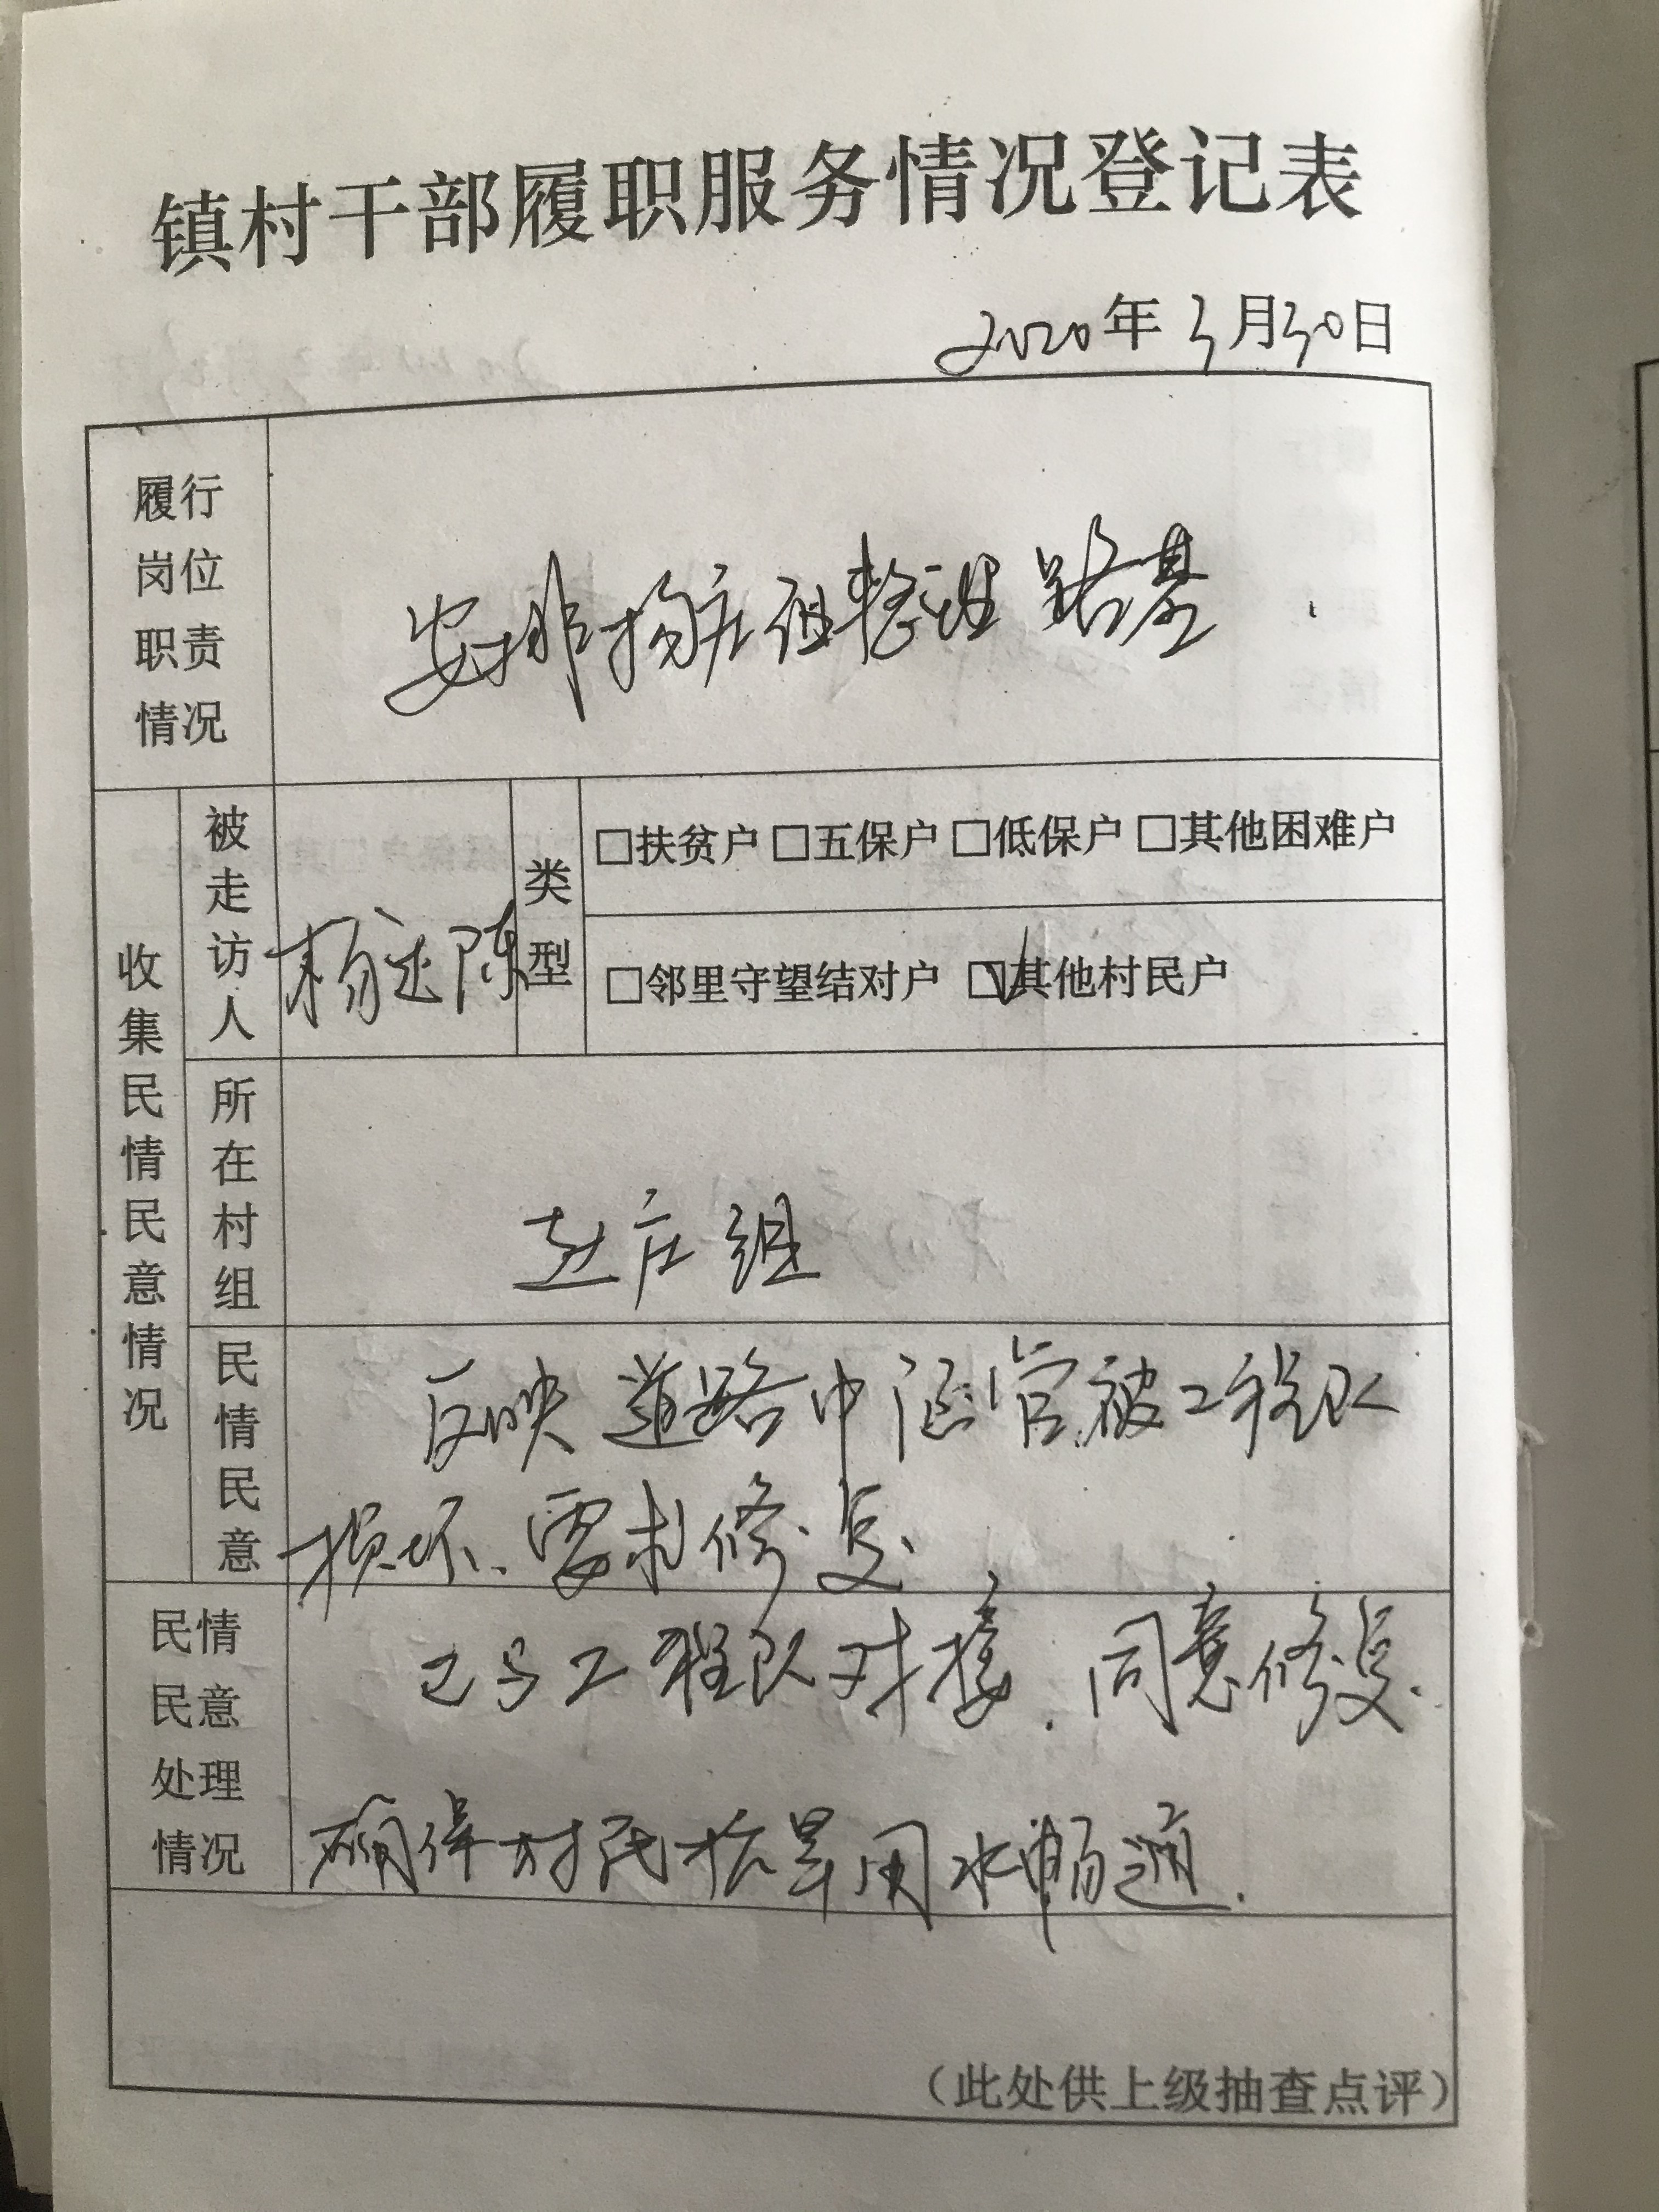 镇村干部履职服务情况登记表
2020年3月30日
履行
岗位
职责
情况
安排杨庄组整理路基
收集民情民意情况
被走访人
杨 陈
类型
□扶贫户 □五保户 □低保户 □其他困难户
□邻里守望结对户 ☑其他村民户
所在村组
庄组
民情民意
反映道路中涵管被工程队
损坏、要求修复
民情
民意
处理
情况
已与工程队对接.同意修复.
确保村民抗旱用水畅通.
（此处供上级抽查点评）